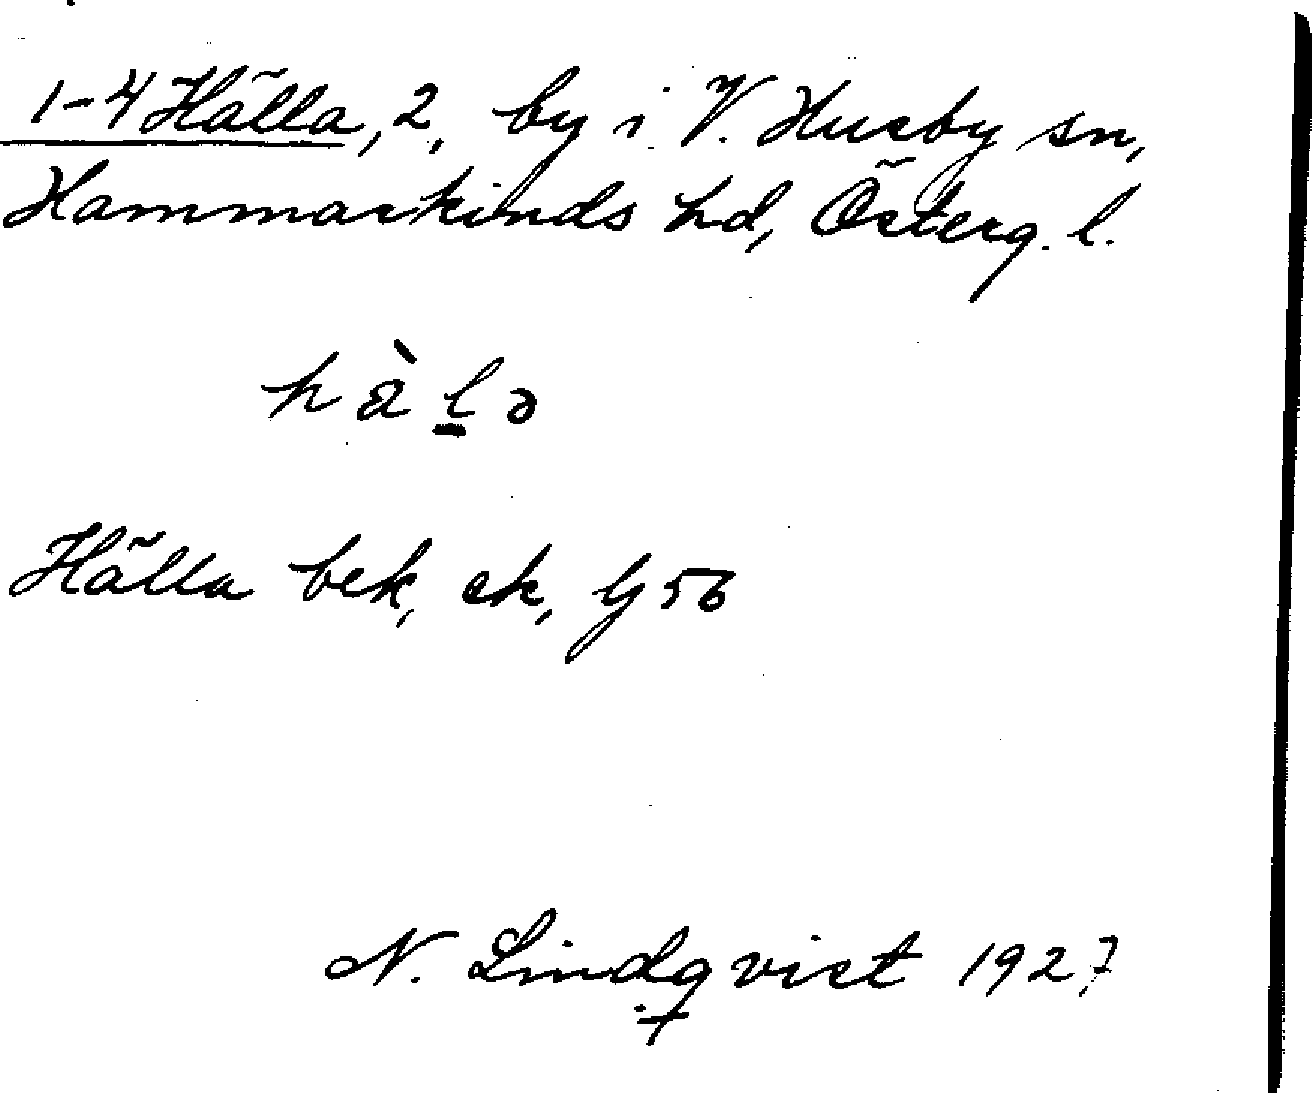 1-4 Hälla, 2, by i V. Husby sn,
Hammarkinds hd, Österg. l.
hàlə
Hälla bek, ek, Gj 56
N. Lindqvist 1927